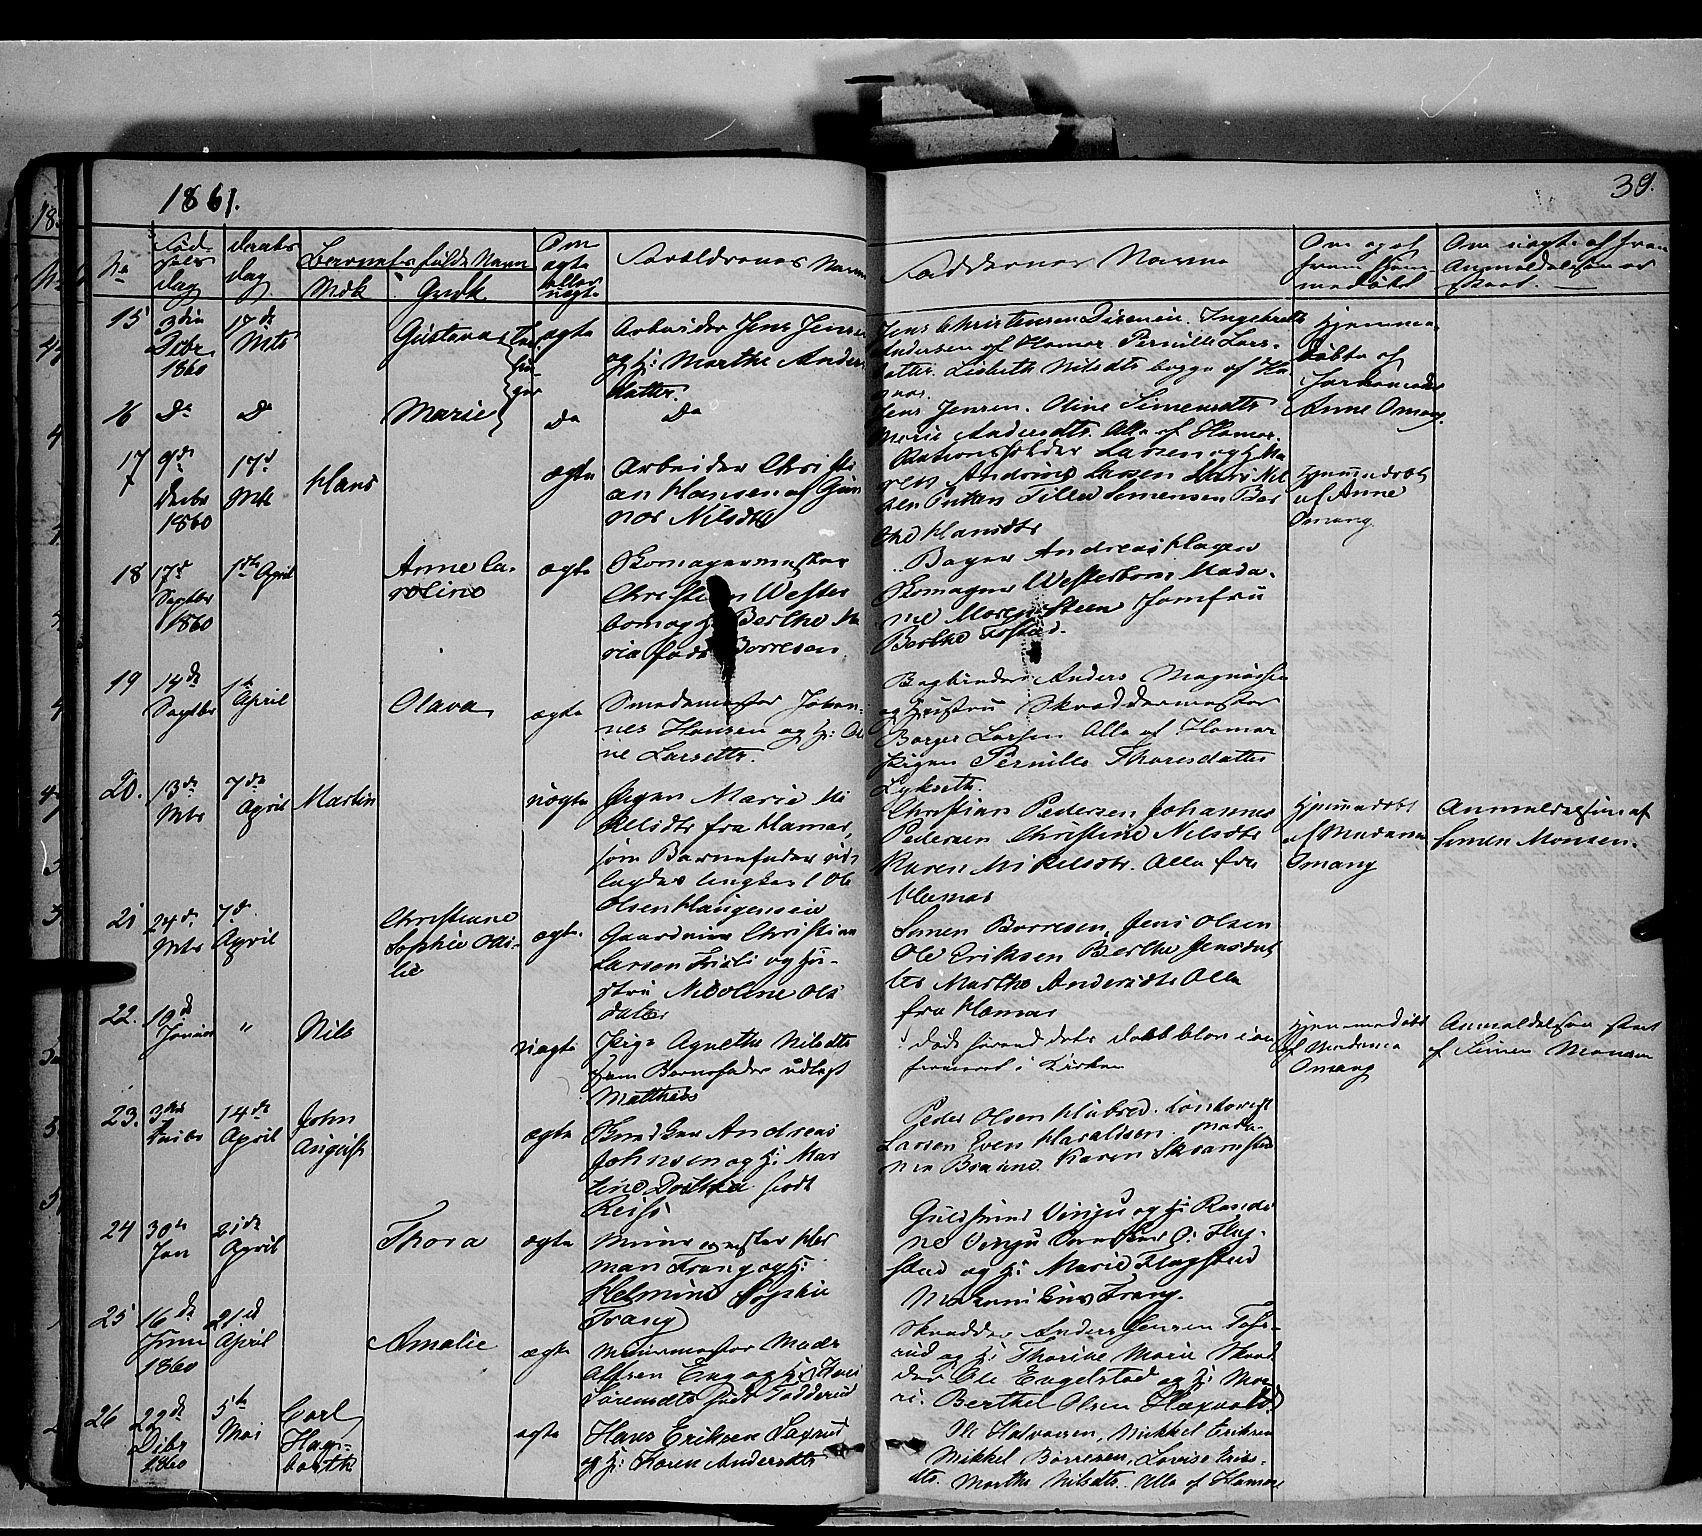 1861.
39.
No
Fødselsdag
Daabsdag
Barnets fulde Navn
Mdk
Qvdk.
Om ægte eller uægte
Forældrenes Navne
Faddernes Navne
Om og af hvem hjemmedøbt
Om uægte af hvem Anmeldelsen er skeet.
15
3die Debr 1860
17de Mts
Gustava
Tvillinger
ægte
Arbeider Jens Jensen
og H: Marthe Anders
datter.
Jens Christensen Ingebreth
Andersen af Hamar Pernille Lars-
datter. Lisbeth Nilsdtr begge af Ha
mar.
Hjemme
døbte af
Jordemoder
Anne Omang.
16
Do
Do
Marie
Do
Do
Jens Jensen. Oline Simensdtr
Marie Andersdtr. Alle af Hamar.
17
9de Decbr 1860
17d Mts
Hans
ægte
Arbeider Christi
an Hansen og Gun
nor Nilsdtr
Larsen og H: Ma
ren Andrine Larsen Lars Nil
sen Tilla Simensen Ber
the Hansdtr
Hjemmedøbt
af Anne
Omang
18
17d Septbr 1860
1ste April
Anne Ca-
roline
ægte
Skomagermester
Christian Wester
bom og H: Berthe Ma
ria født Borresen
Bager Andreas Hagen
Skomager Westerbom Mada-
me Morgensteen Jomfru
Berthe
19
14de Septbr
1ste April
Olava
ægte
Smedemester Johan-
nes Hansen og H: Oli
ne Larsdtr.
Bogbinder Anders Magnussen
og Hustru Skræddermester
Borger Larsen Alle af Hamar
Pigen Pernille Thoresdatter
Lykseth.
20.
13de Mts
7de April
Martin
uægte
Pigen Marie Mi
kelsdtr fra Hamar,
som Barnefader ud-
lagdes Ungkarl Ole
Olsen Haugenseie
Christian Pedersen Johannes
Pedersen Christine Nilsdtr
Karen Mikelsdtr. Alle fra
Hamar
Hjemmedøbt
af Madame
Omang
Anmeldelsen af
Simen Monsen.
21
24de Mts
7d April
Christiane
Sophie Otti-
lie
ægte.
Gaardmand Christian
Larsen og Hu-
stru Nicoline Ols
datter
Simen Borresen, Jens Olsen
Ole Eriksen Berthe Jensdat
ter Marthe Andersdtr Alle
fra Hamar
22.
19d Januar
"
Nils
uægte
Pige Agnethe Nilsdtr
som Barnefader udlagt
Matthias
døde førend dets daab blev con
firmeret i Kirken
Hjemmedøbt
af Madame
Omang
Anmeldelsen skeet
af Simen Monsen
23.
3die Febr
14de April
John
August
ægte
Andreas
Johnsen og H: Mar
tine født
Peder Olsen
Larsen Even Haraldsen. Mada-
me Braund. Karen
24
30te Jan
21de April
Thora
ægte
Muurmester Her
man Frang og H:
Helmine Sophie
Frang
Guldsmed Vinju og H: Randi
ne Vinju O: Flag-
stad og H: Marie Flagstad
Frang.
25
16de Juni 1860
21d April
Amalie
ægte
Muurmester Mads
Olsen Eng og H:
Sørensdtr født
Skrædder Anders Jensen
og H: Thorine Marie Skræd
der Ole Engelstad og H: Ma-
ri. Berthe Olsen
26
22de Debr 1860
5te Mai
Carl
Hag-
barth
ægte
Hans Eriksen Sagrud
og H: Karen Andersdtr
M Halvorsen, Mikkel Eriksen
Mikkel Børresen, Lovise Eriks-
dtr. Marthe Nilsdtr. Alle af Hamar